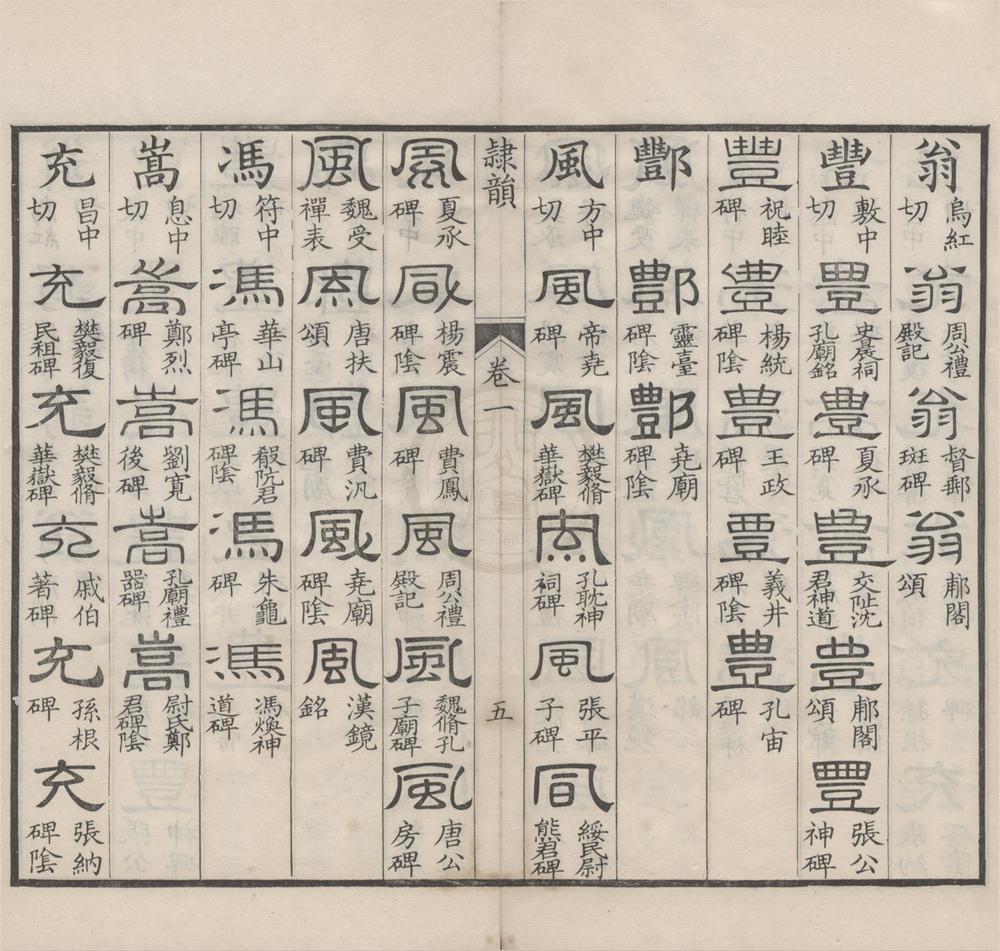 翁 烏紅切 翁 周公禮殿記 翁 督郵斑碑 翁 郙閣頌
豐 敷中切 豐 史晨祠孔廟銘 豐 夏承碑 豐 交阯沈君神道 豐 郙閣頌 豐 張公神碑
豐 祝睦碑 豐 楊統碑陰 豐 王政碑 豐 義井碑陰 豐 孔宙碑
酆 酆 靈臺碑陰 酆 堯廟碑陰
風 方中切 風 帝堯碑 風 樊毅脩華嶽碑 風 孔耽神祠碑 風 張平子碑 風 綏民尉熊君碑
隸韻 卷一 五
風 夏承碑 風 楊震碑陰 風 費鳳碑 風 周公禮殿記 風 魏脩孔子廟碑 風 唐公房碑
風 魏受禪表 風 唐扶頌 風 費汎碑 風 堯廟碑陰 風 漢鏡銘
馮 符中切 馮 華山亭碑 馮 殽阬君碑陰 馮 朱龜碑 馮 馮煥神道碑
嵩 息中切 嵩 鄭烈碑 嵩 劉寬後碑 嵩 孔廟禮器碑 嵩 尉氏鄭君碑陰
充 昌中切 充 樊毅復民租碑 充 樊毅脩華嶽碑 充 戚伯著碑 充 孫根碑 充 張納碑陰